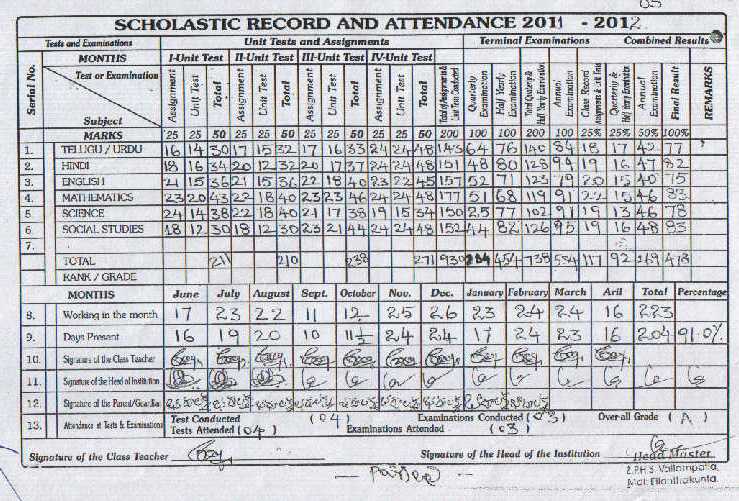 SCHOLASTIC RECORD AND ATTENDANCE 2011 - 2012
Tests and Examinations Unit Tests and Assignments Terminal Examinations Combined Results
Serial No. MONTHS I-Unit Test II-Unit Test III-Unit Test IV-Unit Test
Test or Examination Subject Assignment Unit Test Total Assignment Unit Test Total Assignment Unit Test Total Assignment Unit Test Total Total of Assignments & Unit Test Conducted Quarterly Examination Half Yearly Examination Total Quarterly & Half Yearly Examination Annual Examination Class Record Assignments & Unit Tests Quarterly & Half Yearly Examination Annual Examination Final Result REMARKS
MARKS 25 25 50 25 25 50 25 25 50 25 25 50 200 100 100 200 100 25% 25% 50% 100%
1. TELUGU / URDU 16 14 30 17 15 32 17 16 33 24 24 48 143 64 76 140 84 18 17 42 77
2. HINDI 18 16 34 20 12 32 20 17 37 24 24 48 151 48 80 128 94 19 16 47 82
3. ENGLISH 21 15 36 21 15 36 22 18 40 23 22 45 157 52 71 123 79 20 15 40 75
4. MATHEMATICS 23 20 43 22 18 40 23 23 46 24 24 48 177 51 68 119 91 22 15 46 83
5. SCIENCE 24 14 38 22 18 40 21 17 38 19 15 34 150 25 77 102 91 19 13 46 78
6. SOCIAL STUDIES 18 12 30 18 12 30 23 21 44 24 24 48 152 44 82 126 95 19 16 48 83
7.
TOTAL 211 210 238 271 930 284 454 738 534 117 92 269 478
RANK / GRADE
MONTHS June July August Sept. October Nov. Dec. January February March Aril Total Percentage
8. Working in the month 17 23 22 11 12 25 26 23 24 24 16 223
9. Days Present 16 19 20 10 11½ 24 24 17 24 23 16 204 91.0%
10. Signature of the Class Teacher
11. Signature of the Head of Institution
12. Signature of the Parent/Guardian
13. Attendance at Tests & Examinations Test Conducted (04) Examinations Conducted (03) Over-all Grade (A)
Tests Attended (04) Examinations Attended (03)
Signature of the Class Teacher Signature of the Head of the Institution Head Master
Z.P.H.S. Vallampatla,
Mdl: Ellanthakunta.